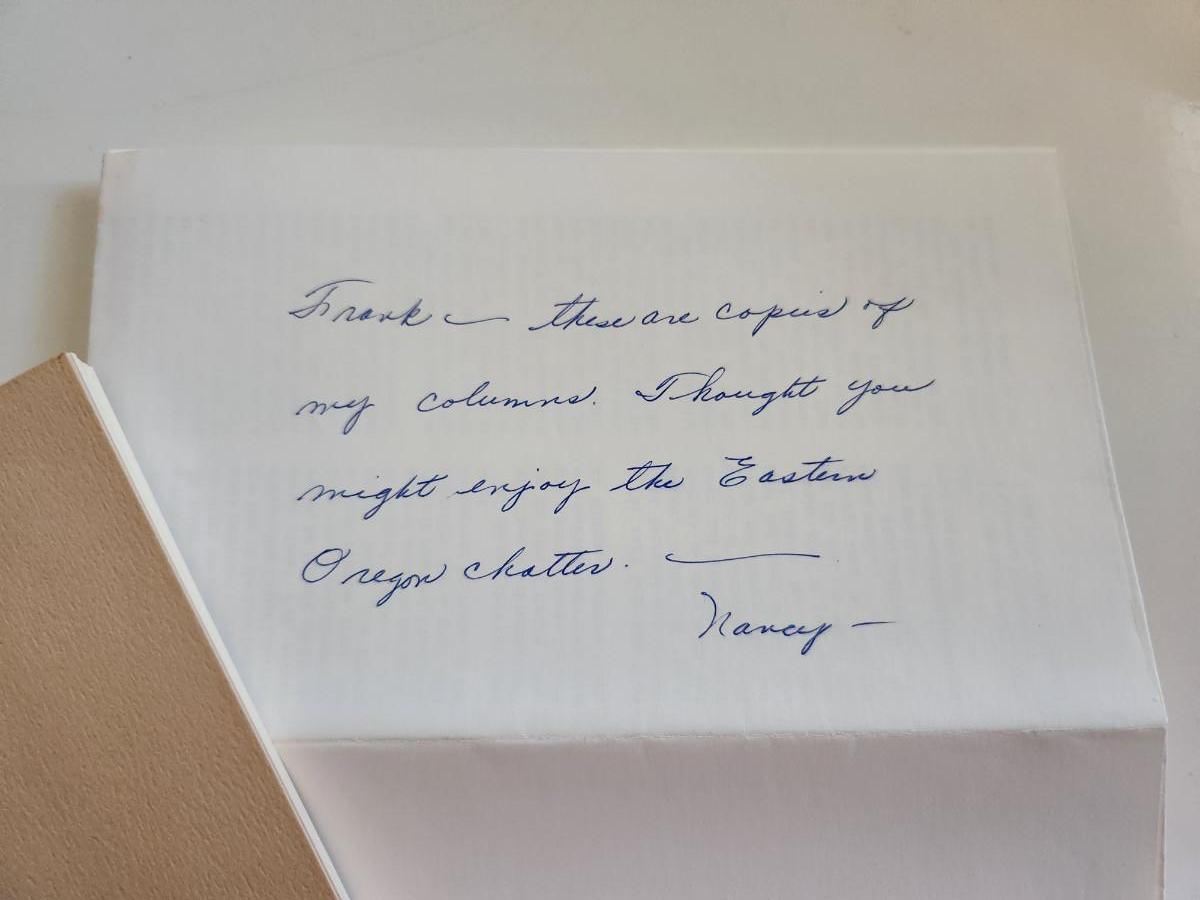 Frank — these are copies of
my columns. Thought you
might enjoy the Eastern
Oregon chatter. —
Nancy —